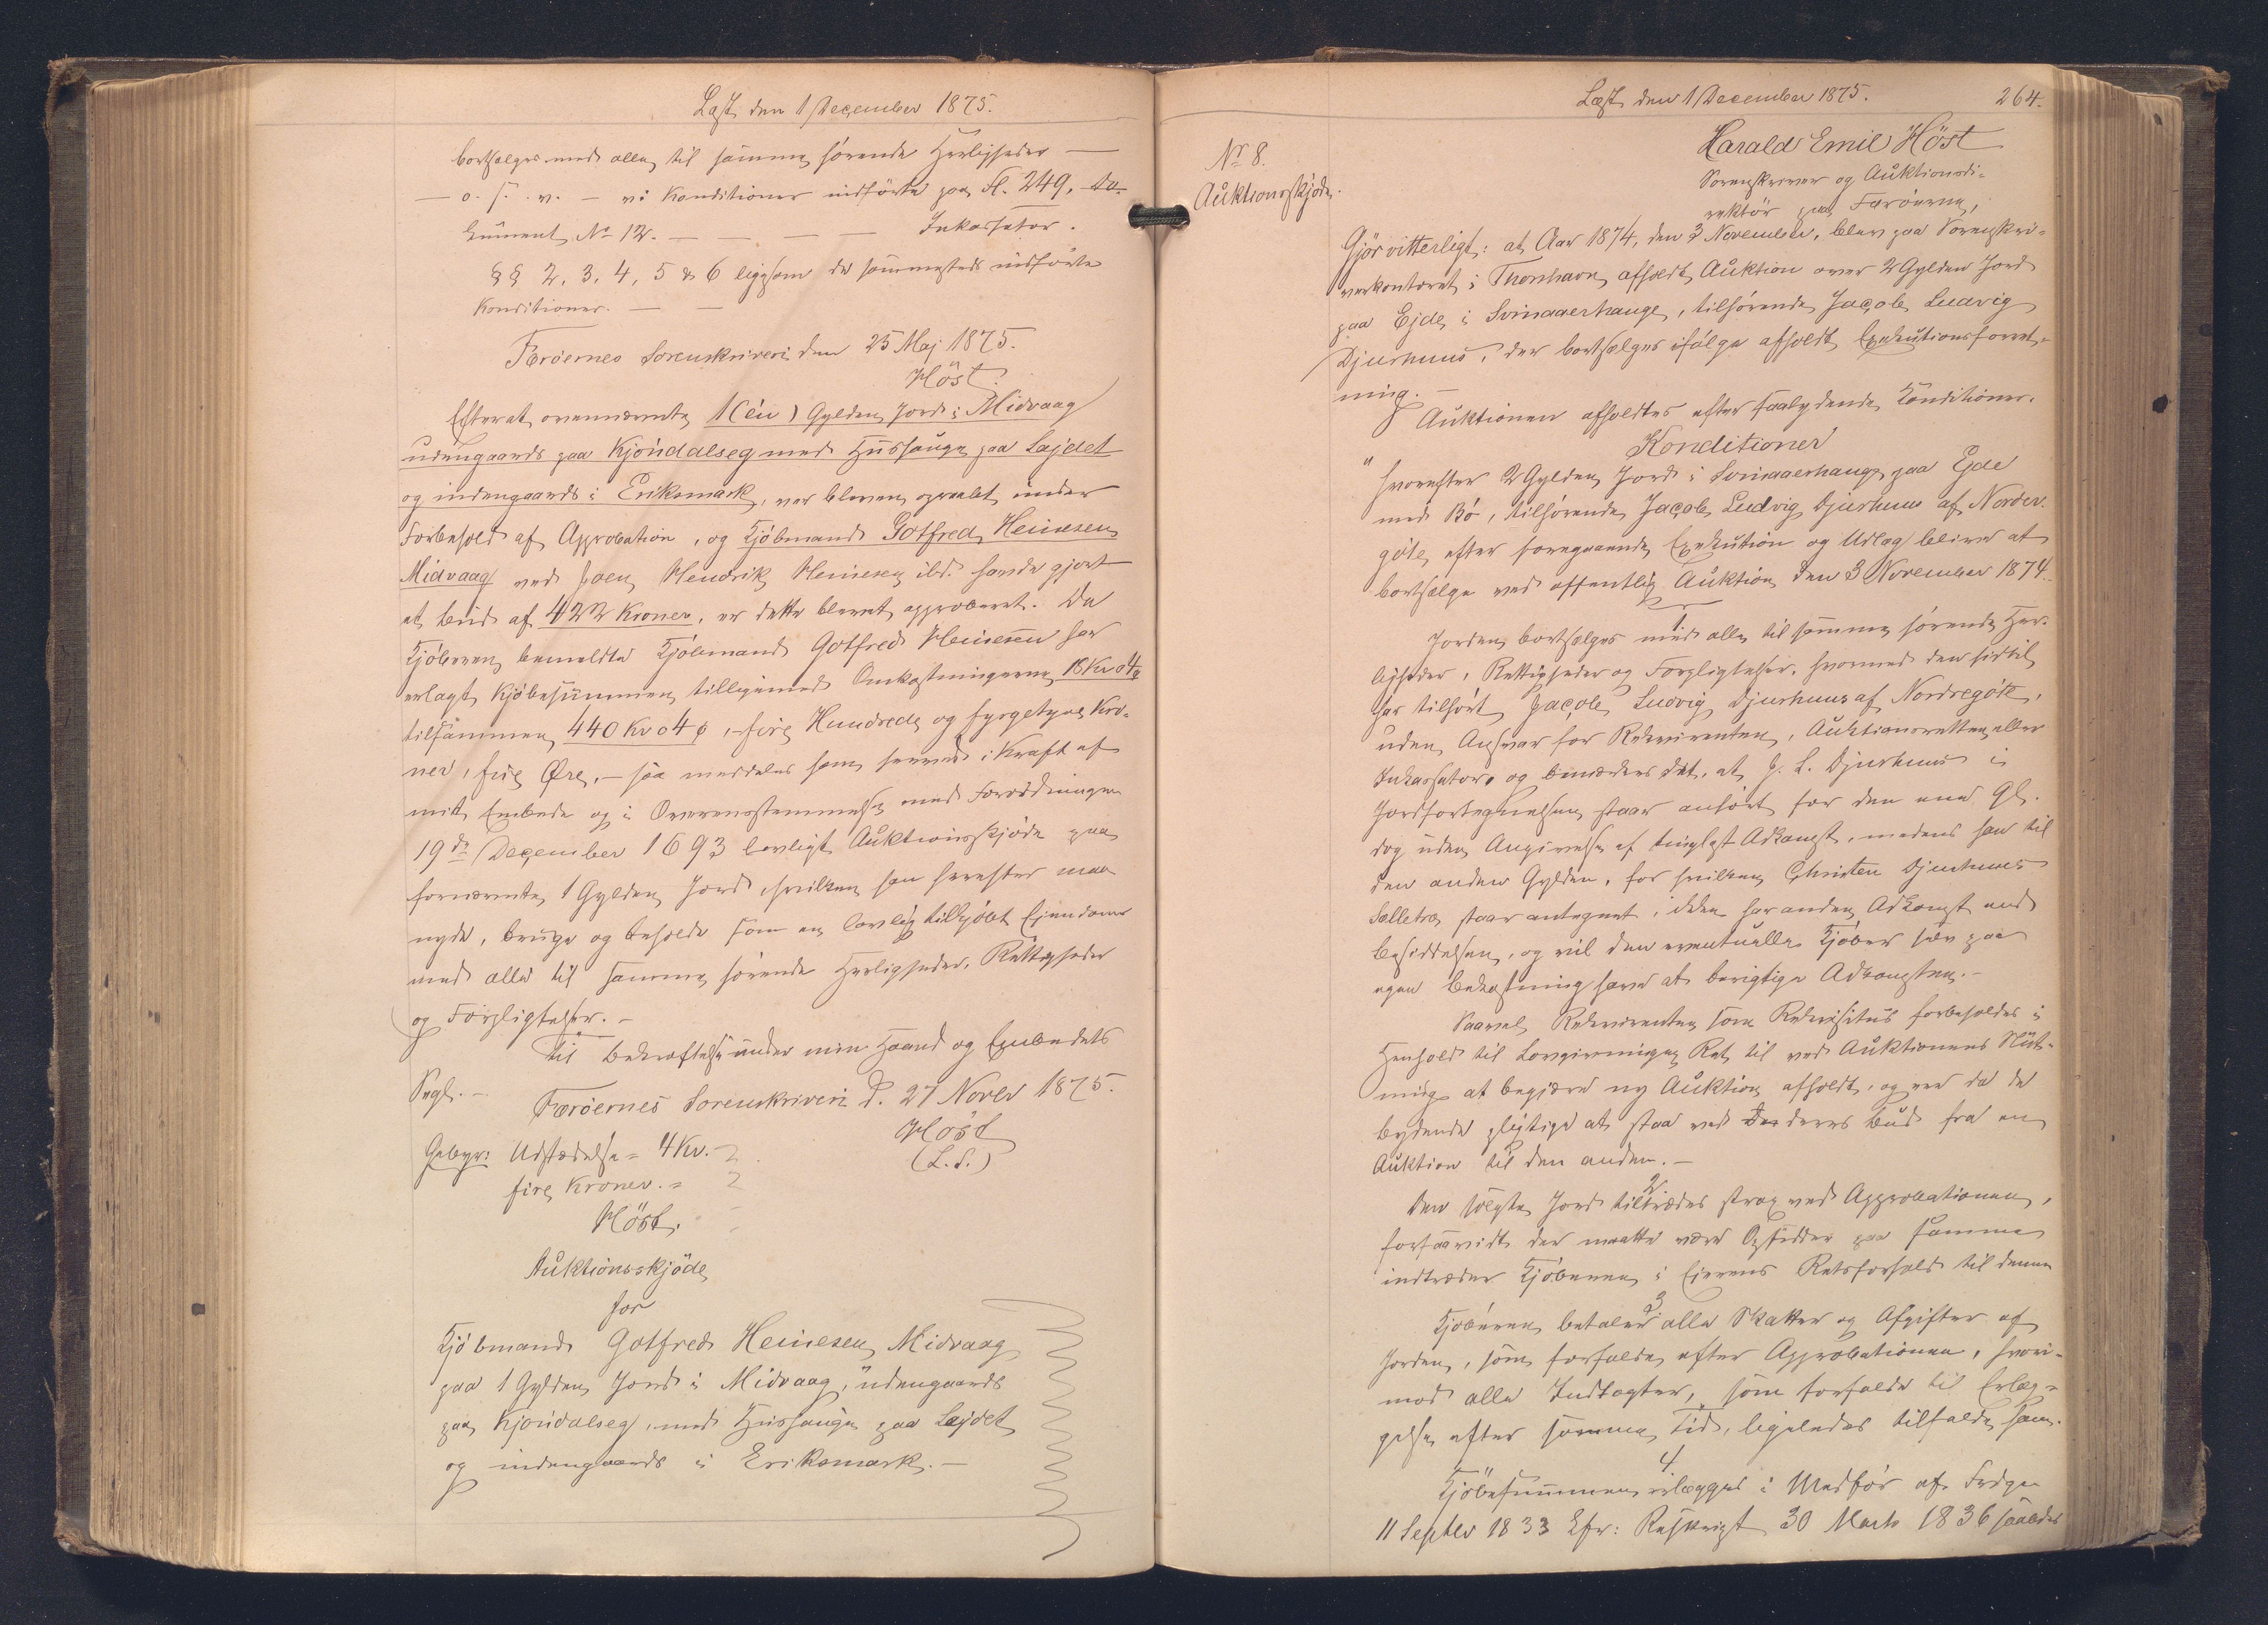 Læst den 1 December 1875.
bortsælges med alle til samme hørende Herligheder —
— o. s. v. — vi Konditioner indførte paa Fl. 249, Do-
kument No 12. — — — — Inkassator.
§§ 2, 3, 4, 5 & 6 ligesom de sammesteds indførte
Konditioner. — —
Færöernes Sorenskriveri den 25 Maj 1875.
Höst.
Efterat ovennævnte 1 (én) Gylden Jord i Midvaag
udengaards paa Kjóudalseg med Huushauge paa Lajdet
og indengaards i Eriksmark, var bleven opraabt under
Forbehold af Approbation, og Kjöbmand Gotfred Heinesen
Midvaag ved Joen Hendrik Heinesen ibd. havde gjort
et bud af 422 Kroner, er dette blevet approberet. Da
Kjöberen bemeldte Kjöbmand Gotfred Heinesen har
erlagt Kjöbesummen tilligemed Omkostningerne 18 Kr 04 ø
tilsammen 440 Kr 04 ø, — fire Hundrede og fyrgetyve Kro-
ner, fire Øre, — saa meddeles ham herved i Kraft af
mit Embede og i Overensstemmelse med Forordningen
19de December 1693 lovligt Auktionsskjöde paa
fornævnte 1 Gylden Jord, hvilken han herefter maa
nyde, bruge og beholde som en lovlig tilkjöbt Ejendom
med alle til samme hørende Herligheder, Rettigheder
og Forpligtelser. —
Til Bekræftelse under min Haand og Embedets
Segl. —
Færöernes Sorenskriveri d. 27 Novbr 1875.
Höst
(L. S.)
Gebyr: Udstædelse = 4 Kr.
fire Kroner. =
Höst.
Auktionsskjöde
for
Kjöbmand Gotfred Heinesen Midvaag
paa 1 Gylden Jord i Midvaag, udengaards
paa Kjoudalseg, med Huushauge paa Lajdet
og indengaards i Eriksmark. —
Læst den 1 December 1875.
264.
No 8.
Auktionsskjöde.
Harald Emil Höst
Sorenskriver og Auktionsdi-
rektör paa Færöerne,
Gjör vitterligt: at Aar 1874, den 3 November, blev paa Sorenskri-
verkontoret i Thorshavn afholdt Auktion over 2 Gylden Jord
paa Ejde i Svinaaerhauge, tilhørende Jacob Ludvig
Djurhuus, der bortsælges ifølge afholdt Exekutionsforret-
ning. —
Auktionen afholdtes efter saalydende Konditioner.
Konditioner
" hvorefter 2 Gylden Jord i Svinaaerhauge paa Ejde
med Bö, tilhørende Jacob Ludvig Djurhuus af Norder-
göte, efter foregaaende Exekution og Udlæg bliver at
bortsælge ved offentlig Auktion den 3 November 1874.
1.
Jorden bortsælges med alle til samme hørende Her-
ligheder, Rettigheder og Forpligtelser, hvormed den hidtil
har tilhørt Jacob Ludvig Djurhuus af Nordregöte,
uden Ansvar for Rekvirenten, Auktionsretten eller
Inkassator, og bemærkes det, at J. L. Djurhuus i
Jordfortegnelsen staar anført for den ene Gl.
dog uden Angivelse af tinglæst Adkomst, medens han til
den anden Gylden, for hvilken Christen Djurhuus
Selletræ staar antegnet, ikke har anden Adkomst end
Besiddelsen, og vil den eventuelle Kjöber selv paa
egen Bekostning have at berigtige Adkomsten. —
Saavel Rekvirenten som Rekvisitus forbeholdes i
Henhold til Lovgivningen Ret til ved Auktionens Slut-
ning at begjære ny Auktion afholdt, og ere da de
bydende pligtige at staa ved deres bud fra en
Auktion til den anden. —
2.
Den solgte Jord tiltrædes strax ved Approbationen,
forsaavidt der maatte være Opsidder paa samme
indtræder Kjöberen i Ejerens Retsforhold til denne
3.
Kjöberen betaler alle Skatter og Afgifter af
Jorden, som forfalde efter Approbationen, hvori-
mod alle Indtægter, som forfalde til Erlæg-
gelse efter samme Tid, ligeledes tilfalde ham.
4.
Kjöbesummen erlægges i Medför af Frdgn
11 Septbr 1833 Cfr: Reskript 30 Marts 1836 saaledes